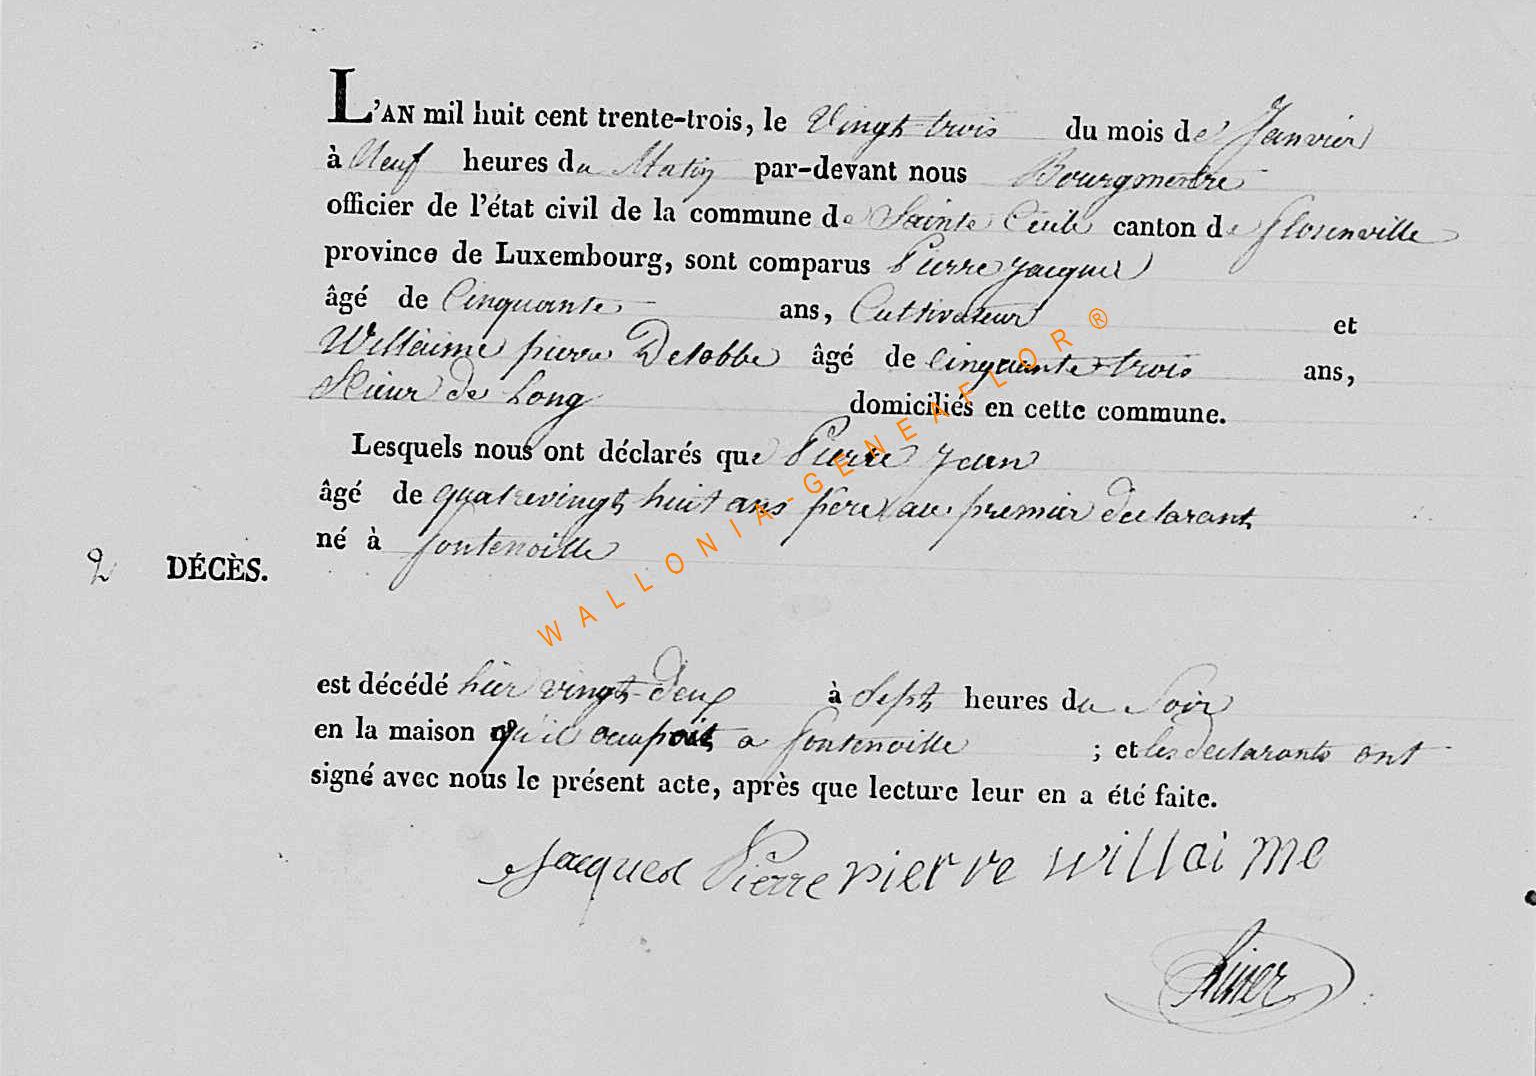 L'AN mil huit cent trente-trois, le Vingt trois du mois de Janvier
à Neuf heures du Matin par-devant nous Bourgmestre
officier de l'état civil de la commune de Sainte Cécile canton de florenville
province de Luxembourg, sont comparus Pierre Jacques
âgé de Cinquante ans, Cultivateur et
Willaime pierre Delobbe âgé de cinquante trois ans,
Scieur de Long domiciliés en cette commune.
Lesquels nous ont déclarés que Pierre Jean
âgé de quatrevingt huit ans père au premier declarant
né à fontenoille
2 DÉCÈS.
est décédé hier vingt-deux à Sept heures du Soir
en la maison qu'il occupoit a fontenoille ; et les declarants ont
signé avec nous le présent acte, après que lecture leur en a été faite.
Jacques Pierre pierre willaime
WALLONIA-GENEAFLOR®